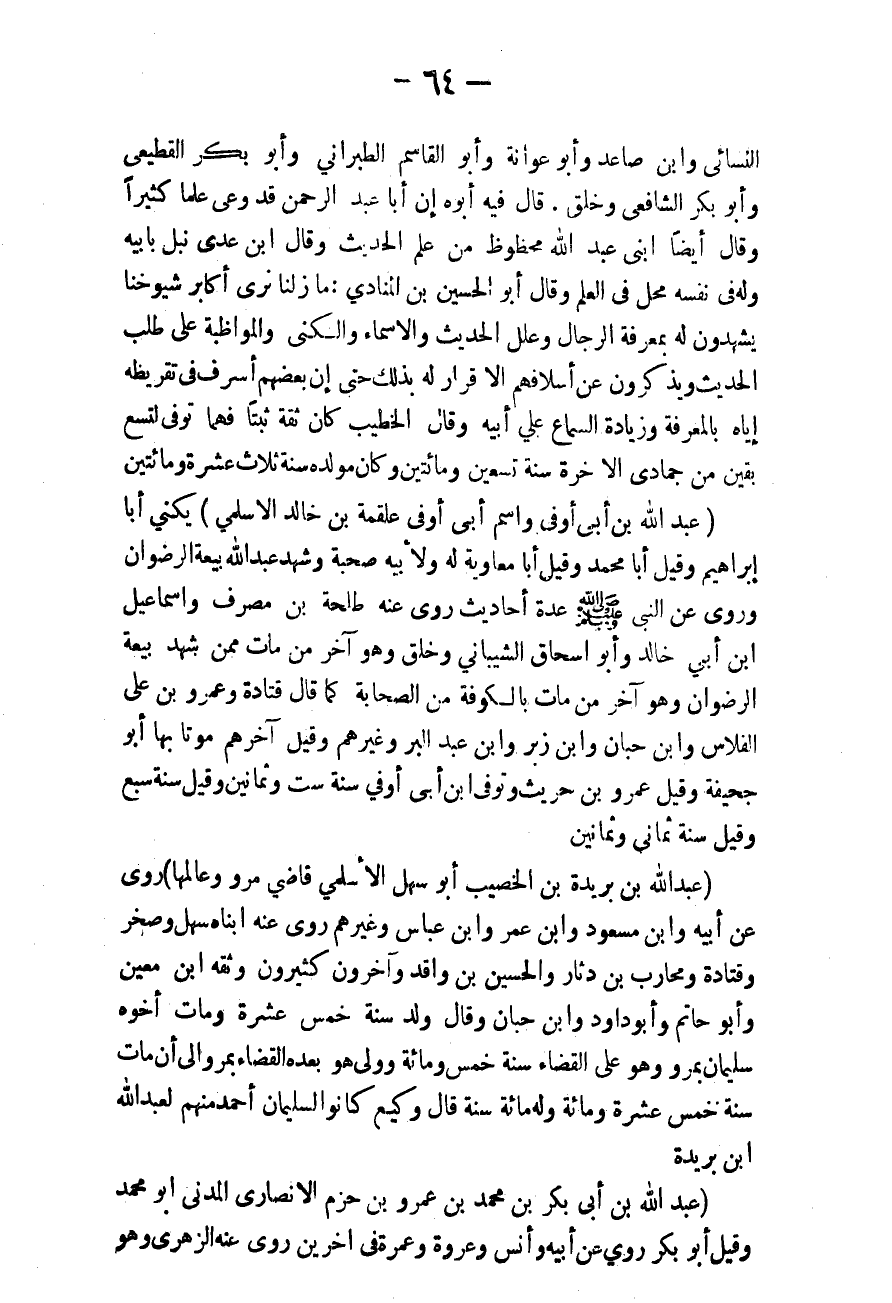 — ٦٤ —
النسائى وابن صاعد وأبو عوانة وأبو القاسم الطبراني وأبو بكر القطيعى
وأبو بكر الشافعى وخلق . قال فيه أبوه إن أبا عبد الرحمن قد وعى علما كثيراً
وقال أيضاً ابنى عبد الله محظوظ من علم الحديث وقال ابن عدى نبل بابيه
وله فى نفسه محل فى العلم وقال أبو الحسين بن المنادي : ما زلنا نرى أكابر شيوخنا
يشهدون له بمعرفة الرجال وعلل الحديث والاسماء والكنى والمواظبة على طلب
الحديث ويذكرون عن أسلافهم الاقرار له بذلك حتى إن بعضهم أسرف فى تقريظه
إياه بالمعرفة وزيادة السماع علي أبيه وقال الخطيب كان ثقة ثبتاً فهما توفى لتسع
بقين من جمادى الاخرة سنة تسعين ومائتين وكان مولده سنة ثلاث عشرة ومائتين
( عبد الله بن أبى أوفى واسم أبى أوفى علقمة بن خالد الاسلمي ) يكني أبا
إبراهيم وقيل أبا محمد وقيل أبا معاوية له ولأبيه صحبة وشهد عبدالله بيعة الرضوان
وروى عن النبى ﷺ عدة أحاديث روى عنه طلحة بن مصرف واسماعيل
ابن أبي خالد وأبو اسحاق الشيباني وخلق وهو آخر من مات ممن شهد بيعة
الرضوان وهو آخر من مات بالكوفة من الصحابة كما قال قتادة وعمرو بن على
الفلاس وابن حبان وابن زبر وابن عبد البر وغيرهم وقيل آخرهم موتا بها أبو
جحيفة وقيل عمرو بن حريث وتوفى ابن أبى أوفي سنة ست وثمانين وقيل سنة سبع
وقيل سنة ثماني وثمانين
(عبدالله بن بريدة بن الخصيب أبو سهل الأسلمي قاضي مرو وعالمها) روى
عن أبيه وابن مسعود وابن عمر وابن عباس وغيرهم روى عنه ابناه سهل وصخر
وقتادة ومحارب بن دثار والحسين بن واقد وآخرون كثيرون وثقه ابن معين
وأبو حاتم وأبو داود وابن حبان وقال ولد سنة خمس عشرة ومات أخوه
سليمان بمرو وهو على القضاء سنة خمس ومائة وولى هو بعده القضاء بمرو الى أن مات
سنة خمس عشرة ومائة وله مائة سنة قال وكيع كانوا لسليمان أحمد منهم لعبدالله
ابن بريدة
(عبد الله بن أبي بكر بن محمد بن عمرو بن حزم الانصارى المدنى ابو محمد
وقيل أبو بكر روي عن أبيه وأنس وعروة وعمرة فى اخرين روى عنه الزهرى وهو